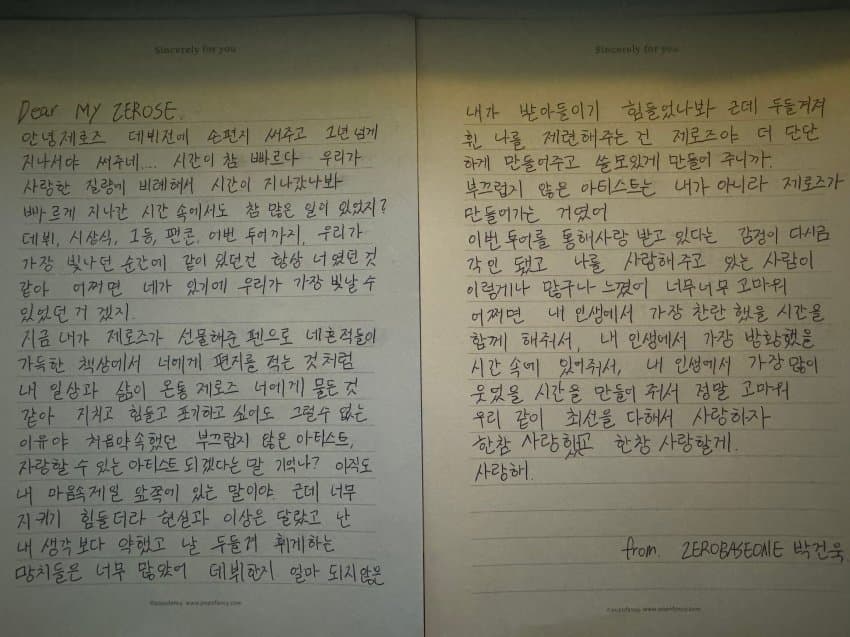 Sincerely for you
Dear MY ZEROSE.
안녕 제로즈 데뷔전에 손편지 써주고 1년 넘게
지나서야 써주네.... 시간이 참 빠르다 우리가
사랑한 질량에 비례해서 시간이 지나갔나봐
빠르게 지나간 시간 속에서도 참 많은 일이 있었지?
데뷔, 시상식, 1등, 팬콘, 이번 투어까지, 우리가
가장 빛나던 순간에 같이 있던건 항상 너였던 것
같아 어쩌면 네가 있기에 우리가 가장 빛날 수
있었던 거 겠지.
지금 내가 제로즈가 선물해준 펜으로 네 흔적들이
가득한 책상에서 너에게 편지를 적는 것 처럼
내 일상과 삶이 온통 제로즈 너에게 물든 것
같아 지치고 힘들고 포기하고 싶어도 그럴수 없는
이유야 처음약속했던 부끄럽지 않은 아티스트,
자랑할 수 있는 아티스트 되겠다는 말 기억나? 아직도
내 마음속 제일 앞쪽에 있는 말이야. 근데 너무
지키기 힘들더라 현실과 이상은 달랐고 난
내 생각보다 약했고 날 두들겨 휘게하는
망치들은 너무 많았어 데뷔한지 얼마 되지않은
©paperfancy www.pnpnfancy.com
Sincerely for you
내가 받아들이기 힘들었나봐 근데 두들겨져
휜 나를 제련해주는 건 제로즈야 더 단단
하게 만들어주고 쓸모있게 만들어 주니까.
부끄럽지 않은 아티스트는 내가 아니라 제로즈가
만들어가는 거였어
이번 투어를 통해 사랑 받고 있다는 감정이 다시금
각인 됐고 나를 사랑해주고 있는 사람이
이렇게나 많구나 느꼈어 너무너무 고마워
어쩌면 내 인생에서 가장 찬란 했을 시간을
함께 해줘서, 내 인생에서 가장 방황했을
시간 속에 있어줘서, 내 인생에서 가장 많이
웃었을 시간을 만들어 줘서 정말 고마워
우리 같이 최선을 다해서 사랑하자
한참 사랑했고 한창 사랑할게.
사랑해.
from. ZEROBASEONE 박건욱.